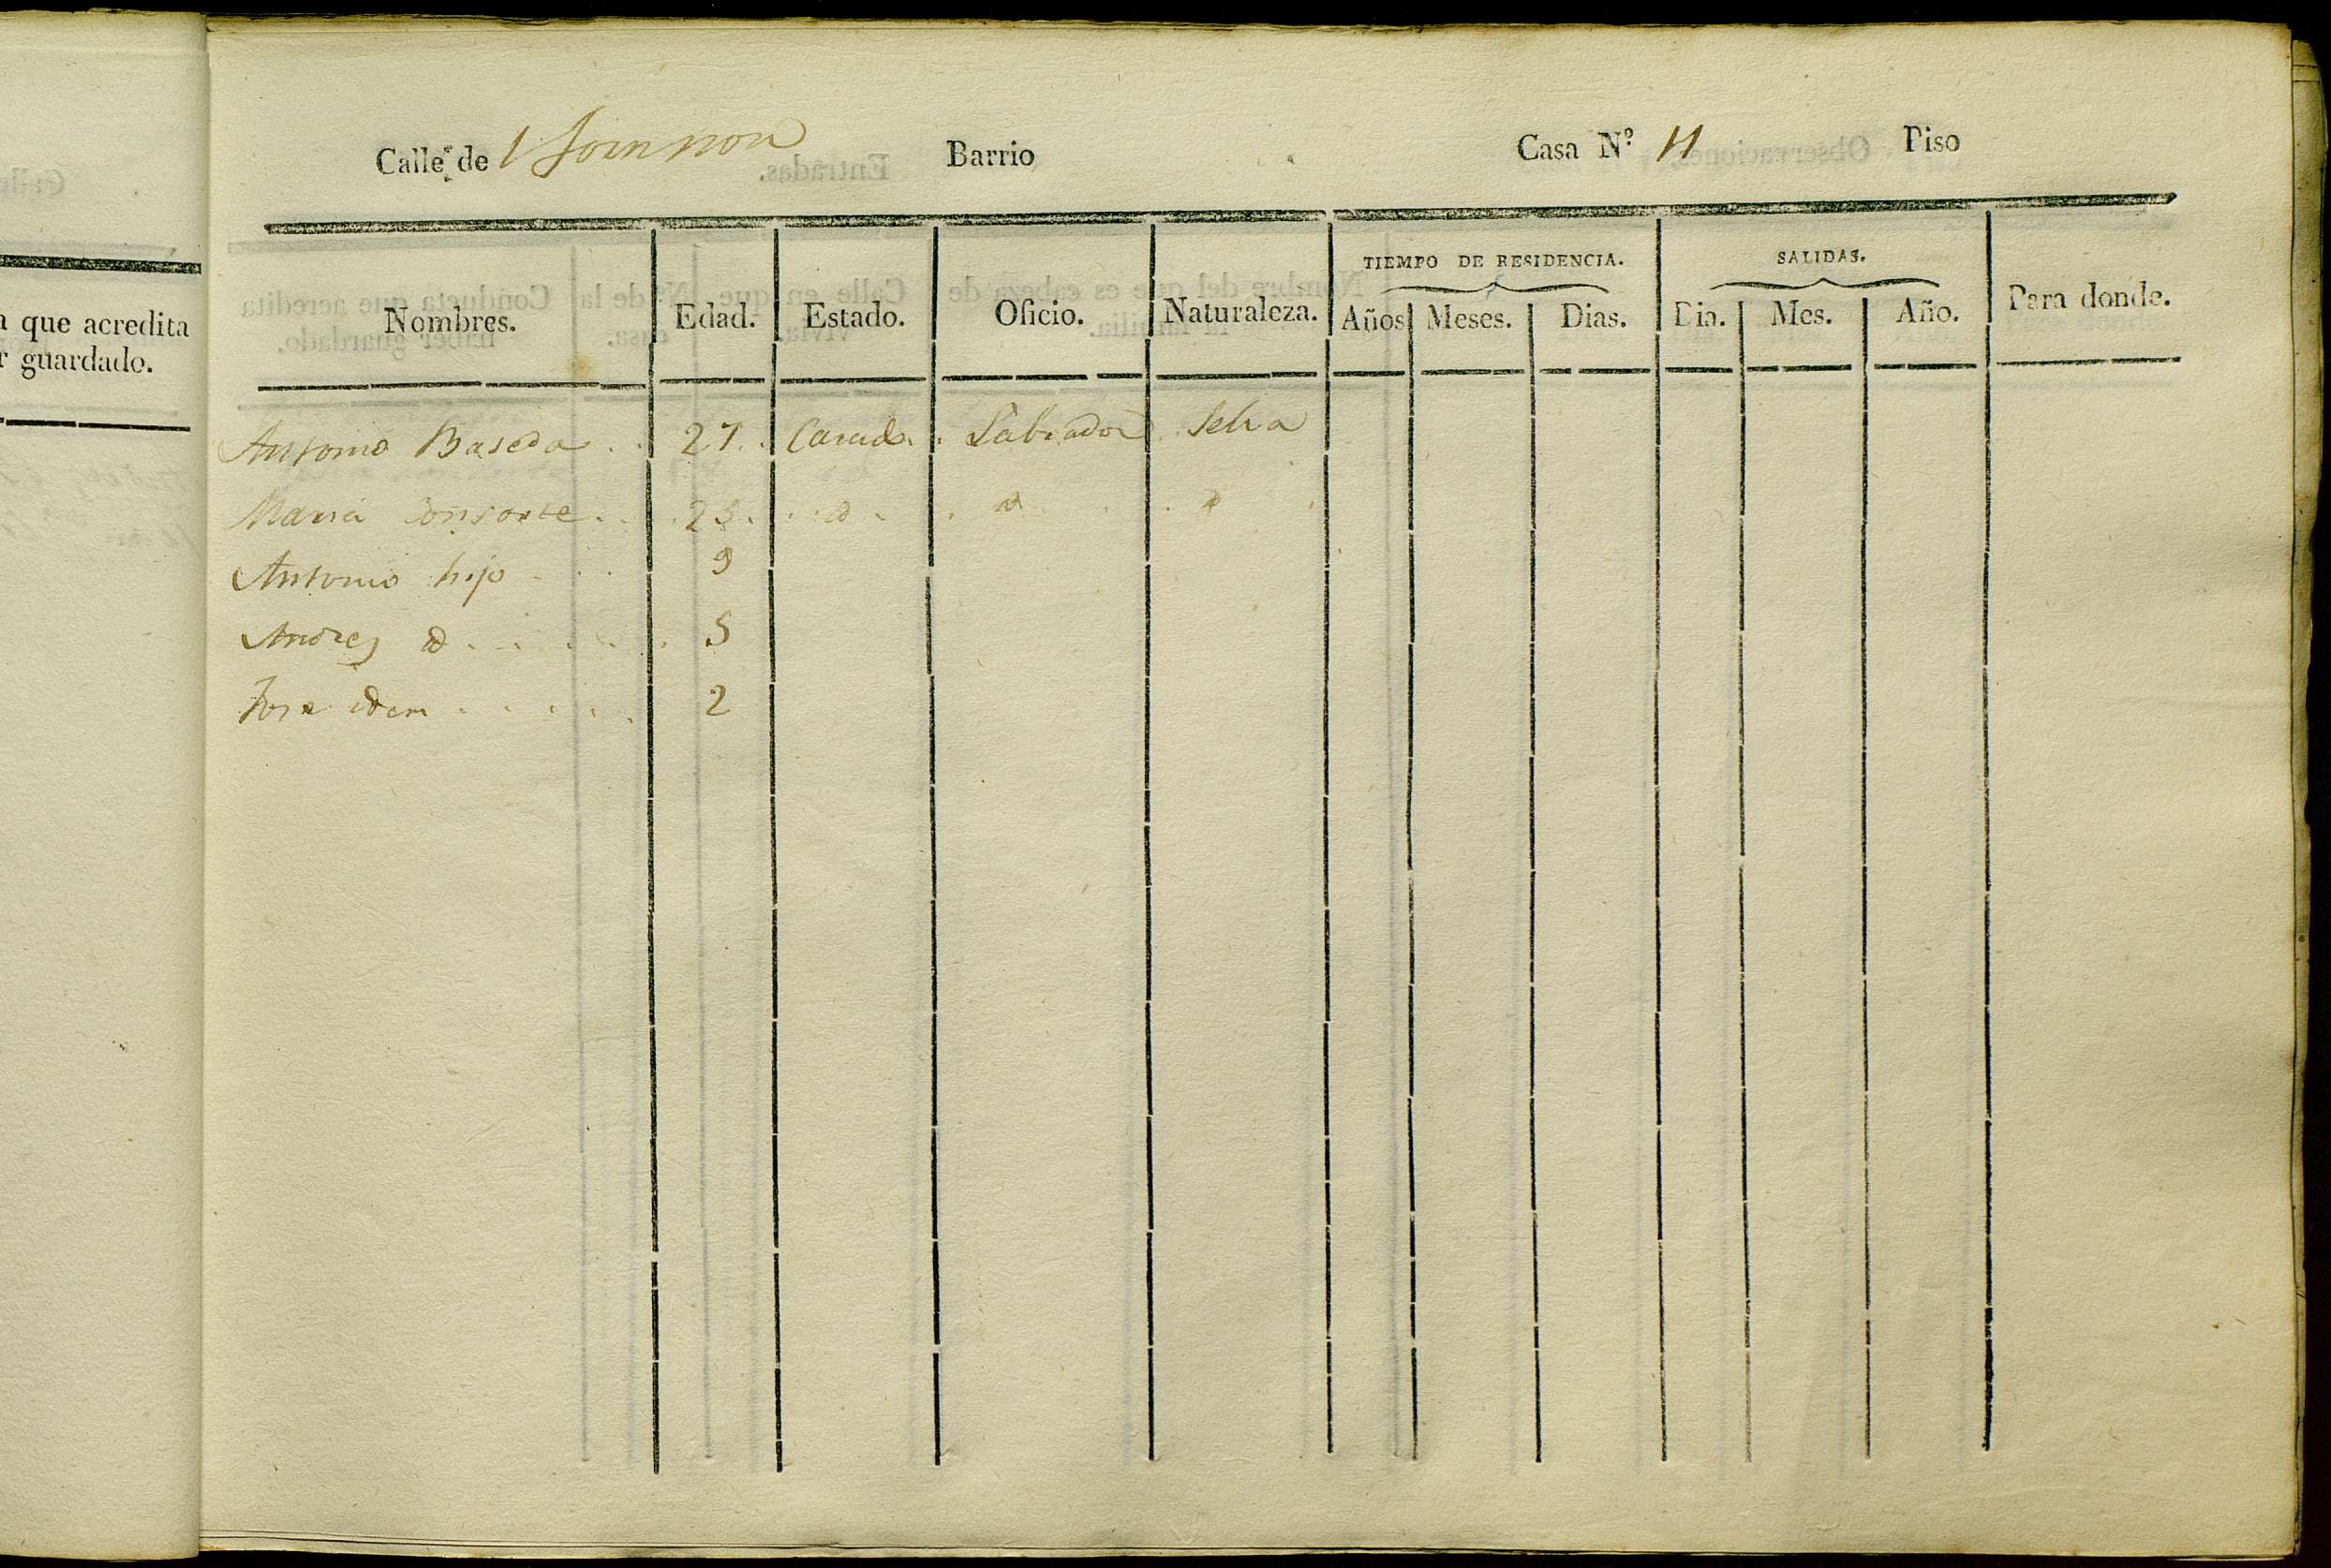 a que acredita
r guardado.
Calle de Barrio Casa N.º 11 Piso
TIEMPO DE RESIDENCIA. SALIDAS.
Nombres. Edad. Estado. Oficio. Naturaleza. Años Meses. Dias. Dia. Mes. Año. Para donde.
Antonio Baseda . . 27 . Casado . Labrador Selva
Maria Consorte . . 25 . . d . . d . . d .
Antonio hijo . . . 9
Andres id . . . . . 5
Jose idem . . . . . 2